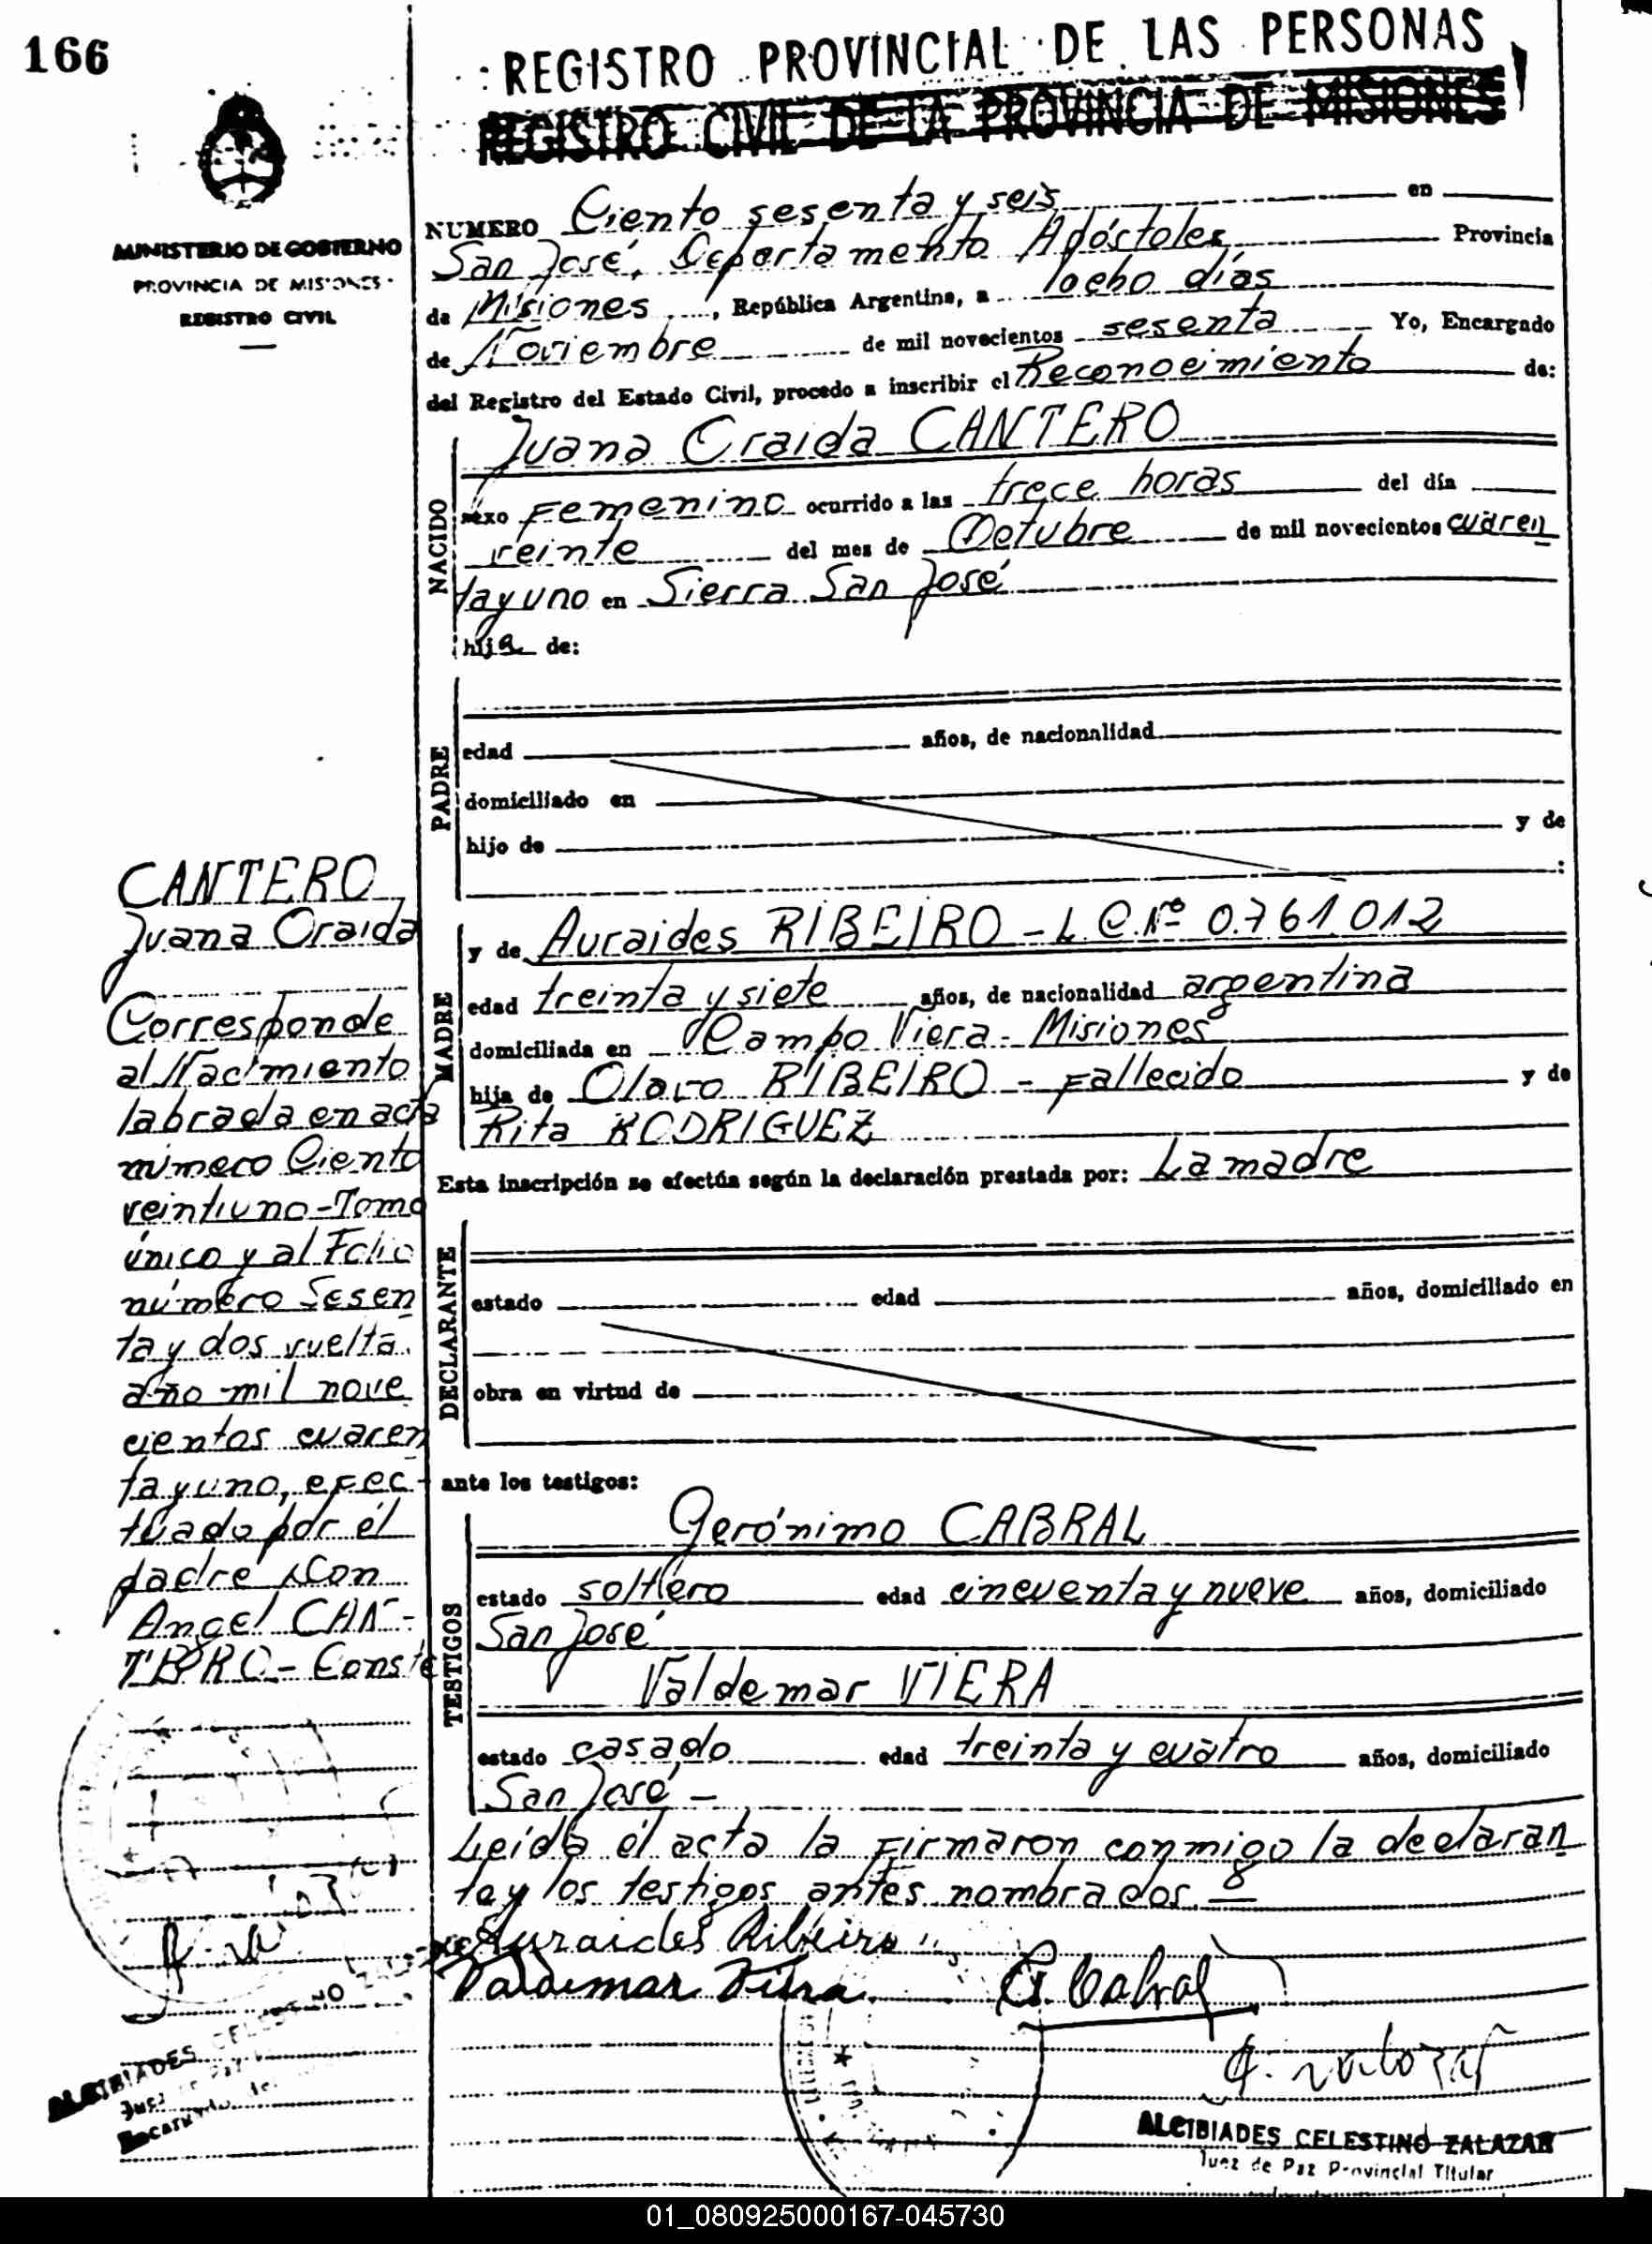 166
REGISTRO PROVINCIAL DE LAS PERSONAS
REGISTRO CIVIL DE LA PROVINCIA DE MISIONES
MINISTERIO DE GOBIERNO
PROVINCIA DE MISIONES
REGISTRO CIVIL
NUMERO Ciento sesenta y seis en
San José, Departamento Apóstoles Provincia
de Misiones, República Argentina, a ocho días
de Noviembre de mil novecientos sesenta Yo, Encargado
del Registro del Estado Civil, procedo a inscribir el Reconocimiento de:
NACIDO
Juana Oraida CANTERO
sexo Femenino ocurrido a las trece horas del día
veinte del mes de Octubre de mil novecientos cuaren
tayuno en Sierra San José
hija de:
PADRE
edad años, de nacionalidad
domiciliado en
hijo de y de
:
MADRE
y de Auraides RIBEIRO - L.C.Nº 0.761.012
edad treinta y siete años, de nacionalidad argentina
domiciliada en Campo Viera - Misiones
hija de Olavo RIBEIRO - Fallecido y de
Rita RODRIGUEZ
Esta inscripción se efectúa según la declaración prestada por: La madre
DECLARANTE
estado edad años, domiciliado en
obra en virtud de
ante los testigos:
TESTIGOS
Gerónimo CABRAL
estado soltero edad cincuenta y nueve años, domiciliado
San José
Valdemar VIERA
estado casado edad treinta y cuatro años, domiciliado
San José -
Leída el acta la Firmaron conmigo la declaran
te y los testigos antes nombrados. =
Auraides Ribeiro
Valdemar Viera G. Cabral
ALCIBIADES CELESTINO ZALAZAR
Juez de Paz Provincial Titular
CANTERO
Juana Oraida
Corresponde
al Nacimiento
labrada en acta
número Ciento
veintiuno - Tomo
único y al Folio
número Sesen
ta y dos vuelta.
año mil nove
cientos cuaren
tayuno, efec-
tuado por el
padre Don
Angel CAN-
TERO - Conste
ALCIBIADES CELESTINO
01_080925000167-045730